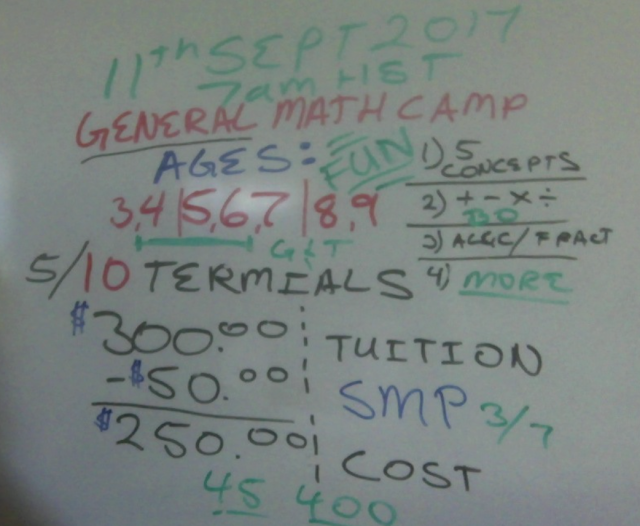 11th SEPT 2017
7am HST
GENERAL MATH CAMP
AGES: FUN
3,4|5,6,7|8,9
G&T
1) 5 CONCEPTS
2) + - × ÷
3) ALGC/FRACT
4) MORE
5/10 TERMIALS
$300.00 TUITION
-$50.00 SMP 3/7
$250.00 COST
45 400